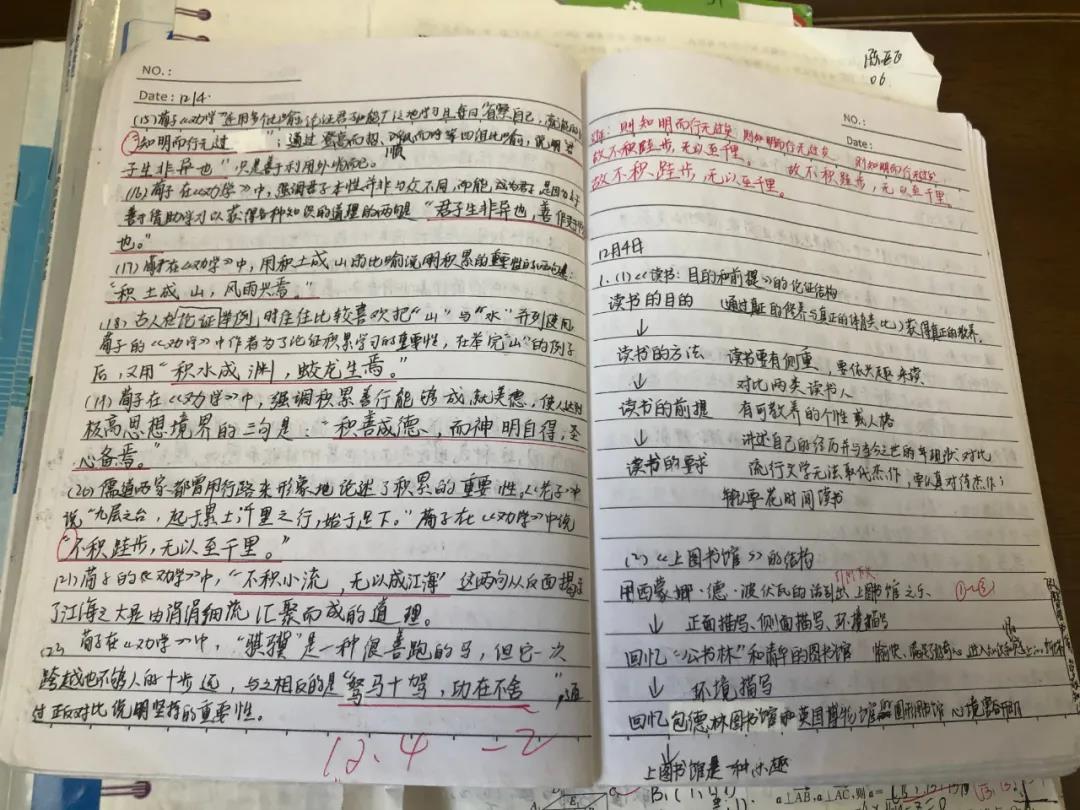 NO.:
Date: 12/4
(15) 荀子《劝学》运用多个比喻论证君子如能广泛地学习且每日省察自己,就能做到
知明而行无过 ";通过登高而招、顺风而呼等四组比喻,说明"君
顺
子生非异也"只是善于利用外物而已。
(16) 荀子在《劝学》中,强调君子本性并非与众不同,而能成为君子是因为
善于借助学习以获得各种知识的道理的两句是"君子生非异也,善假于物
也。"
(17) 荀子在《劝学》中,用积土成山的比喻说明积累的重要性的两句是:
"积土成山,风雨兴焉。"
(18) 古人在论证举例时往往比较喜欢把"山"与"水"并列使用,
荀子的《劝学》中作者为了论证积累学习的重要性,在举完"山"的例子
后,又用"积水成渊,蛟龙生焉。
(19) 荀子在《劝学》中,强调积累善行能够成就美德,使人达到
极高思想境界的三句是:"积善成德,而神明自得,圣
心备焉。"
(20) 儒道两家都曾用行路来形象地论述了积累的重要性。《老子》中
说"九层之台,起于累土;千里之行,始于足下。"荀子在《劝学》中说
"不积跬步,无以至千里。"
(21) 荀子的《劝学》中,"不积小流,无以成江海"这两句从反面揭示
了江海之大是由涓涓细流汇聚而成的道理。
(22) 荀子在《劝学》中,"骐骥"是一种很善跑的马,但它一次
跨越也不够人的十步远,与之相反的是"驽马十驾,功在不舍",通
过正反对比说明坚持的重要性。
12.4 -2
06
NO.:
Date:
则知明而行无过矣 则知明而行无过矣 则知明而行无过矣
故不积跬步,无以至千里。 故不积跬步,无以至千里。
故不积跬步,无以至千里。
12月4日
1. (1)《读书:目的和前提》的论证结构
读书的目的 通过真正的修养与真正的体育类比;获得真正的教养。
↓
读书的方法 读书要有侧重、要依兴趣来读
↓ 对比两类读书人
读书的前提 有可教养的个性或人格
↓ 讲述自己的经历并与当今之世的年轻状对比
读书的要求 流行文学无法取代杰作;要认真对待杰作;
要花时间读书
(2)《上图书馆》的结构
用西蒙娜·德·波伏瓦的话引出上图书馆之乐 ①~③
↓ 正面描写、侧面描写、环境描写
回忆"公书林"和清华的图书馆 愉快、满足好奇心
↓ 环境描写
回忆包德林图书馆和英国博物馆圆形图书馆
↓
上图书馆是一种乐趣